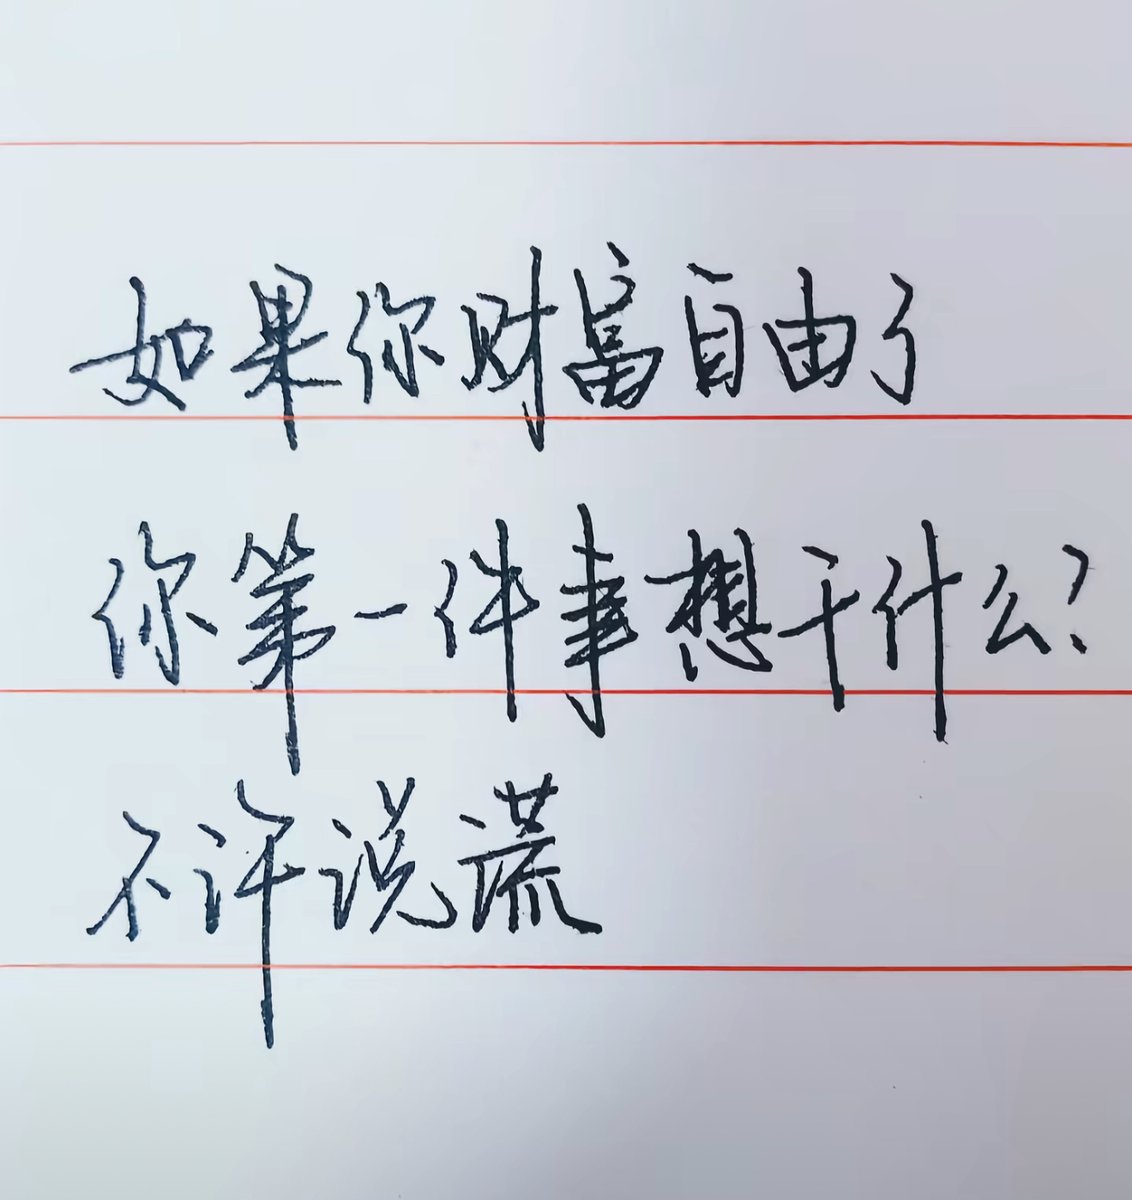 如果你财富自由了
你第一件事想干什么?
不许说谎